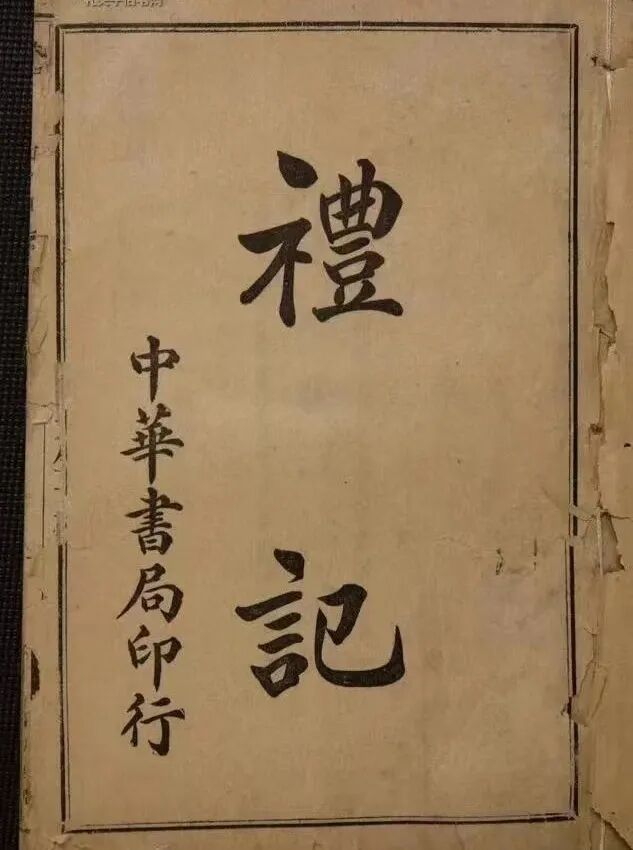 禮記
中華書局印行